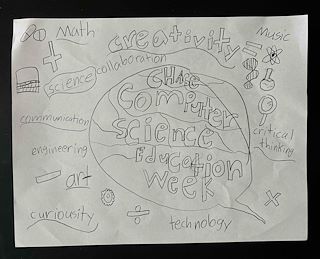 Math
Music
creativity
collaboration
science
CHASE
Computer
Science
Education
Week
communication
critical
thinking
engineering
art
curiousity
technology